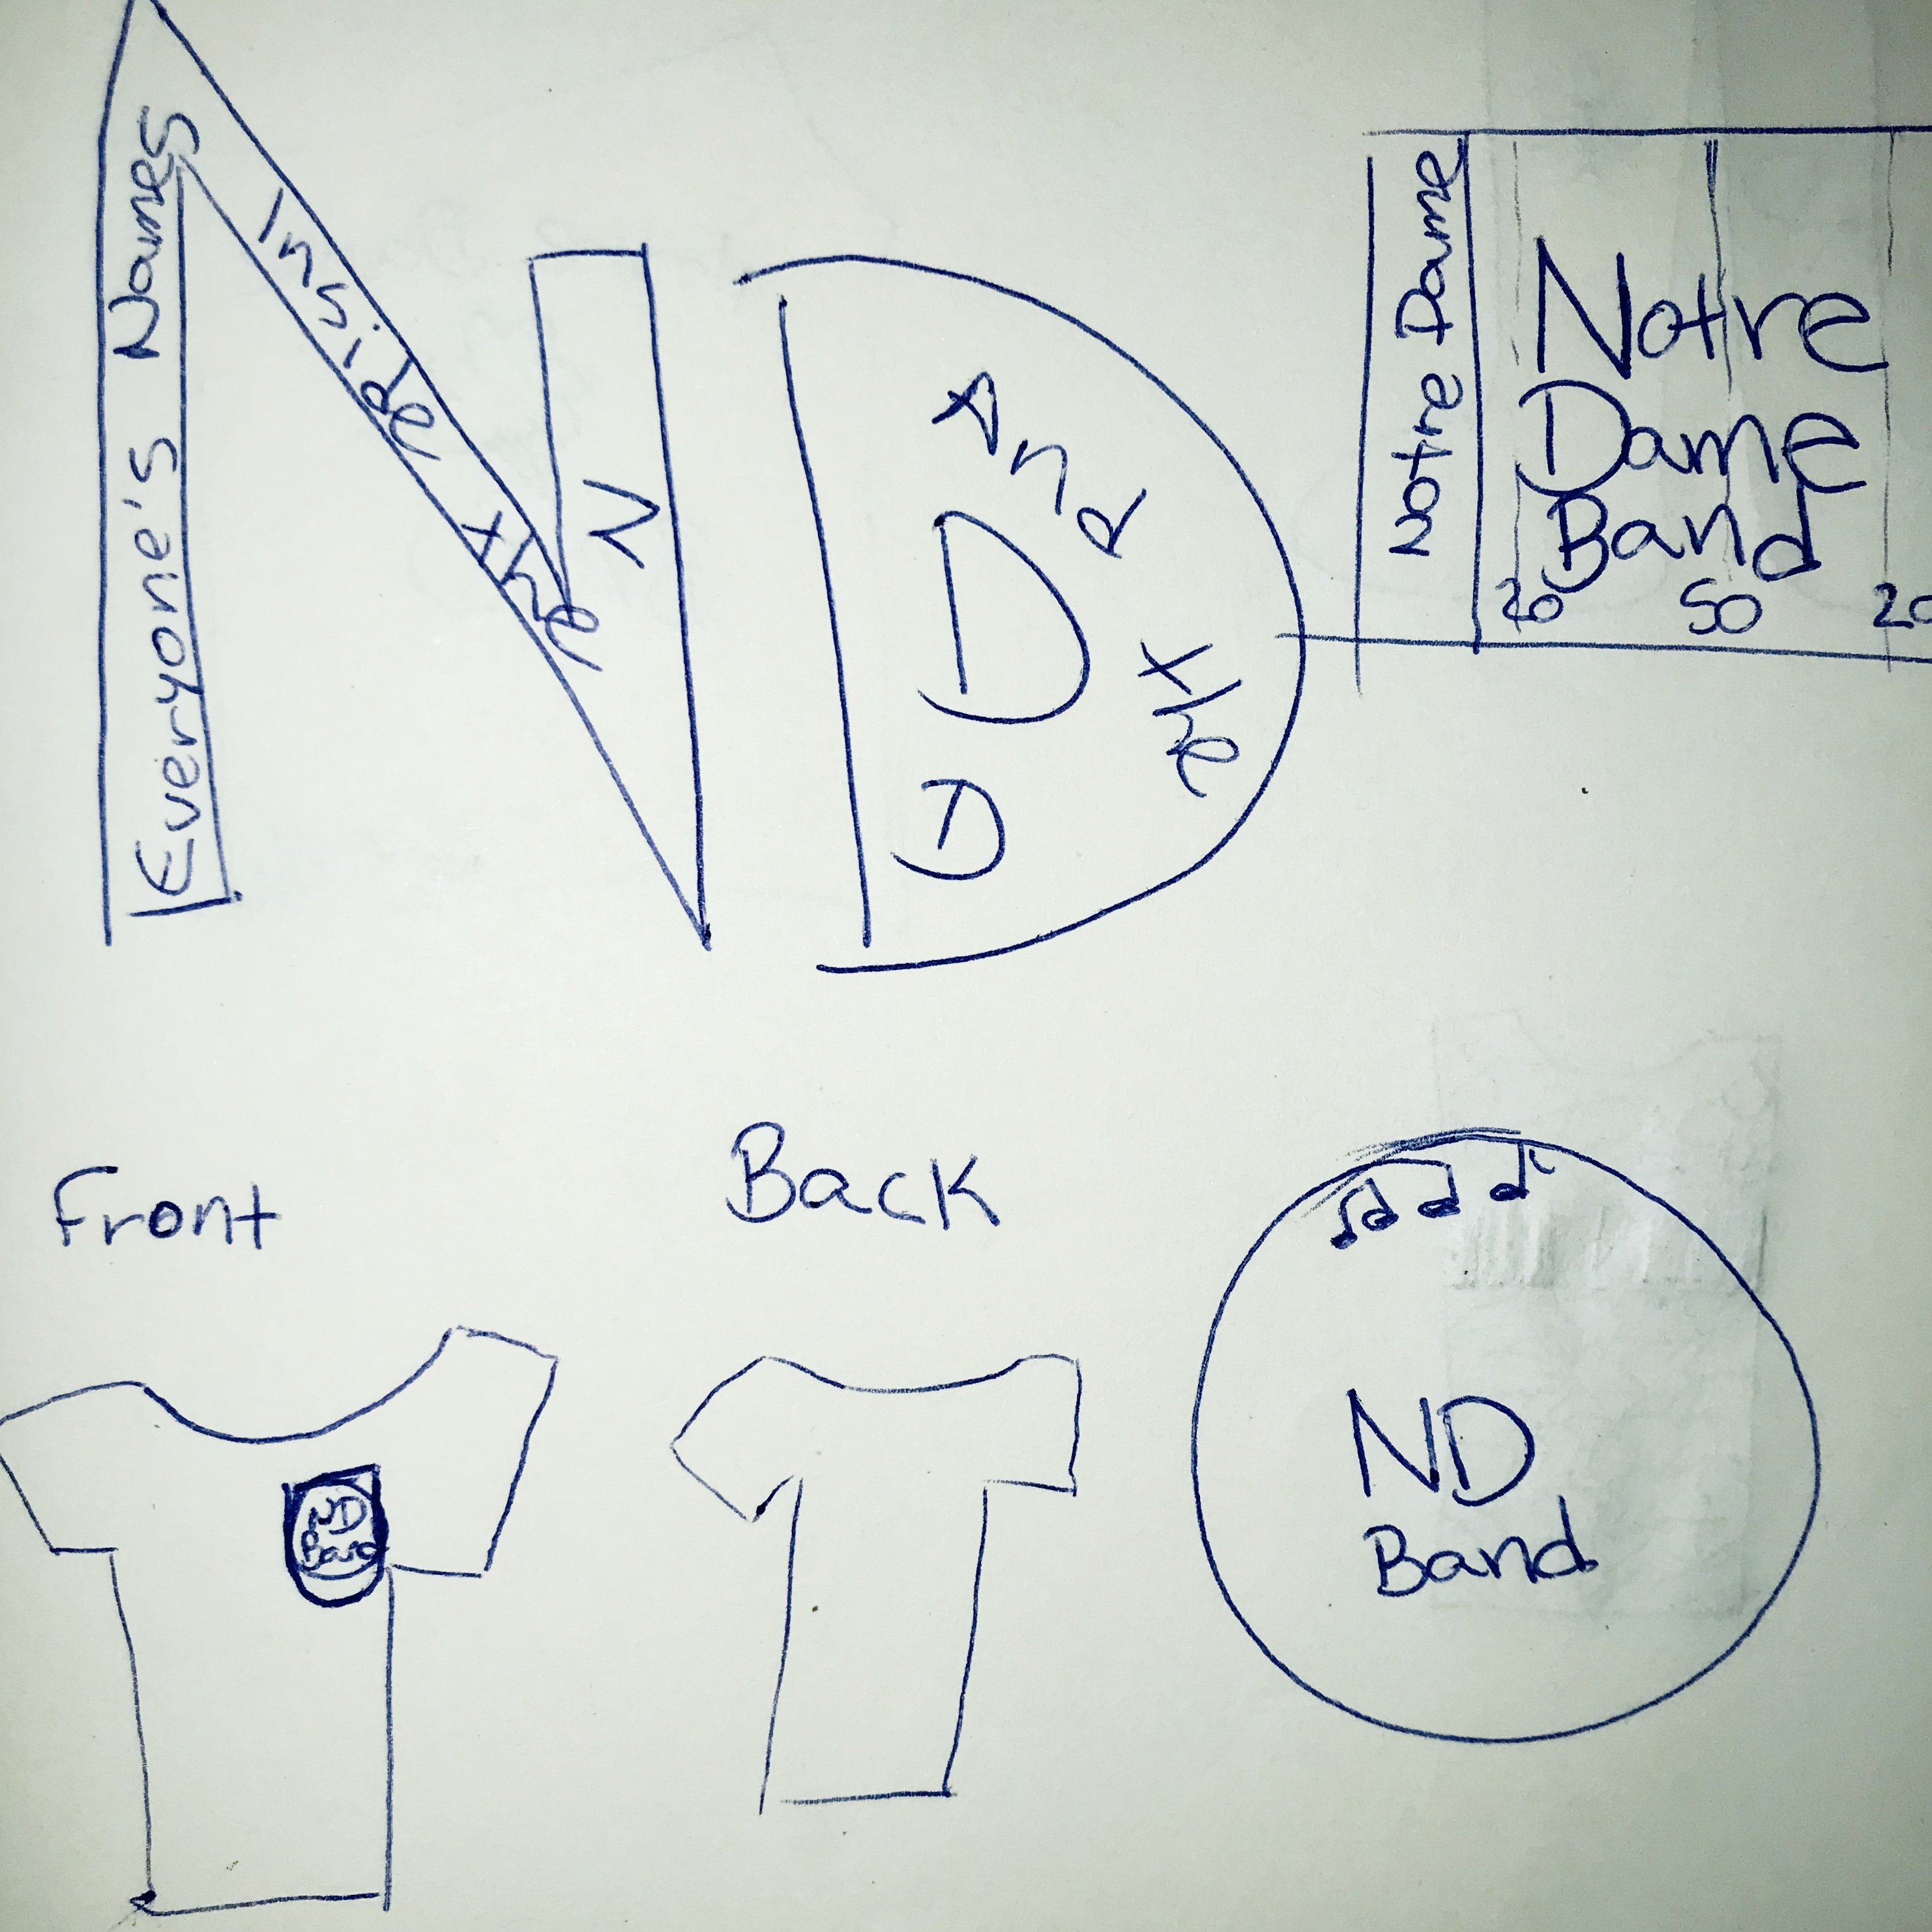 Everyone's Names
Inside
The
N
And
The
D
D
Notre Dame
Notre
Dame
Band
20 50 20
Front
Back
ND
Band
ND
Band